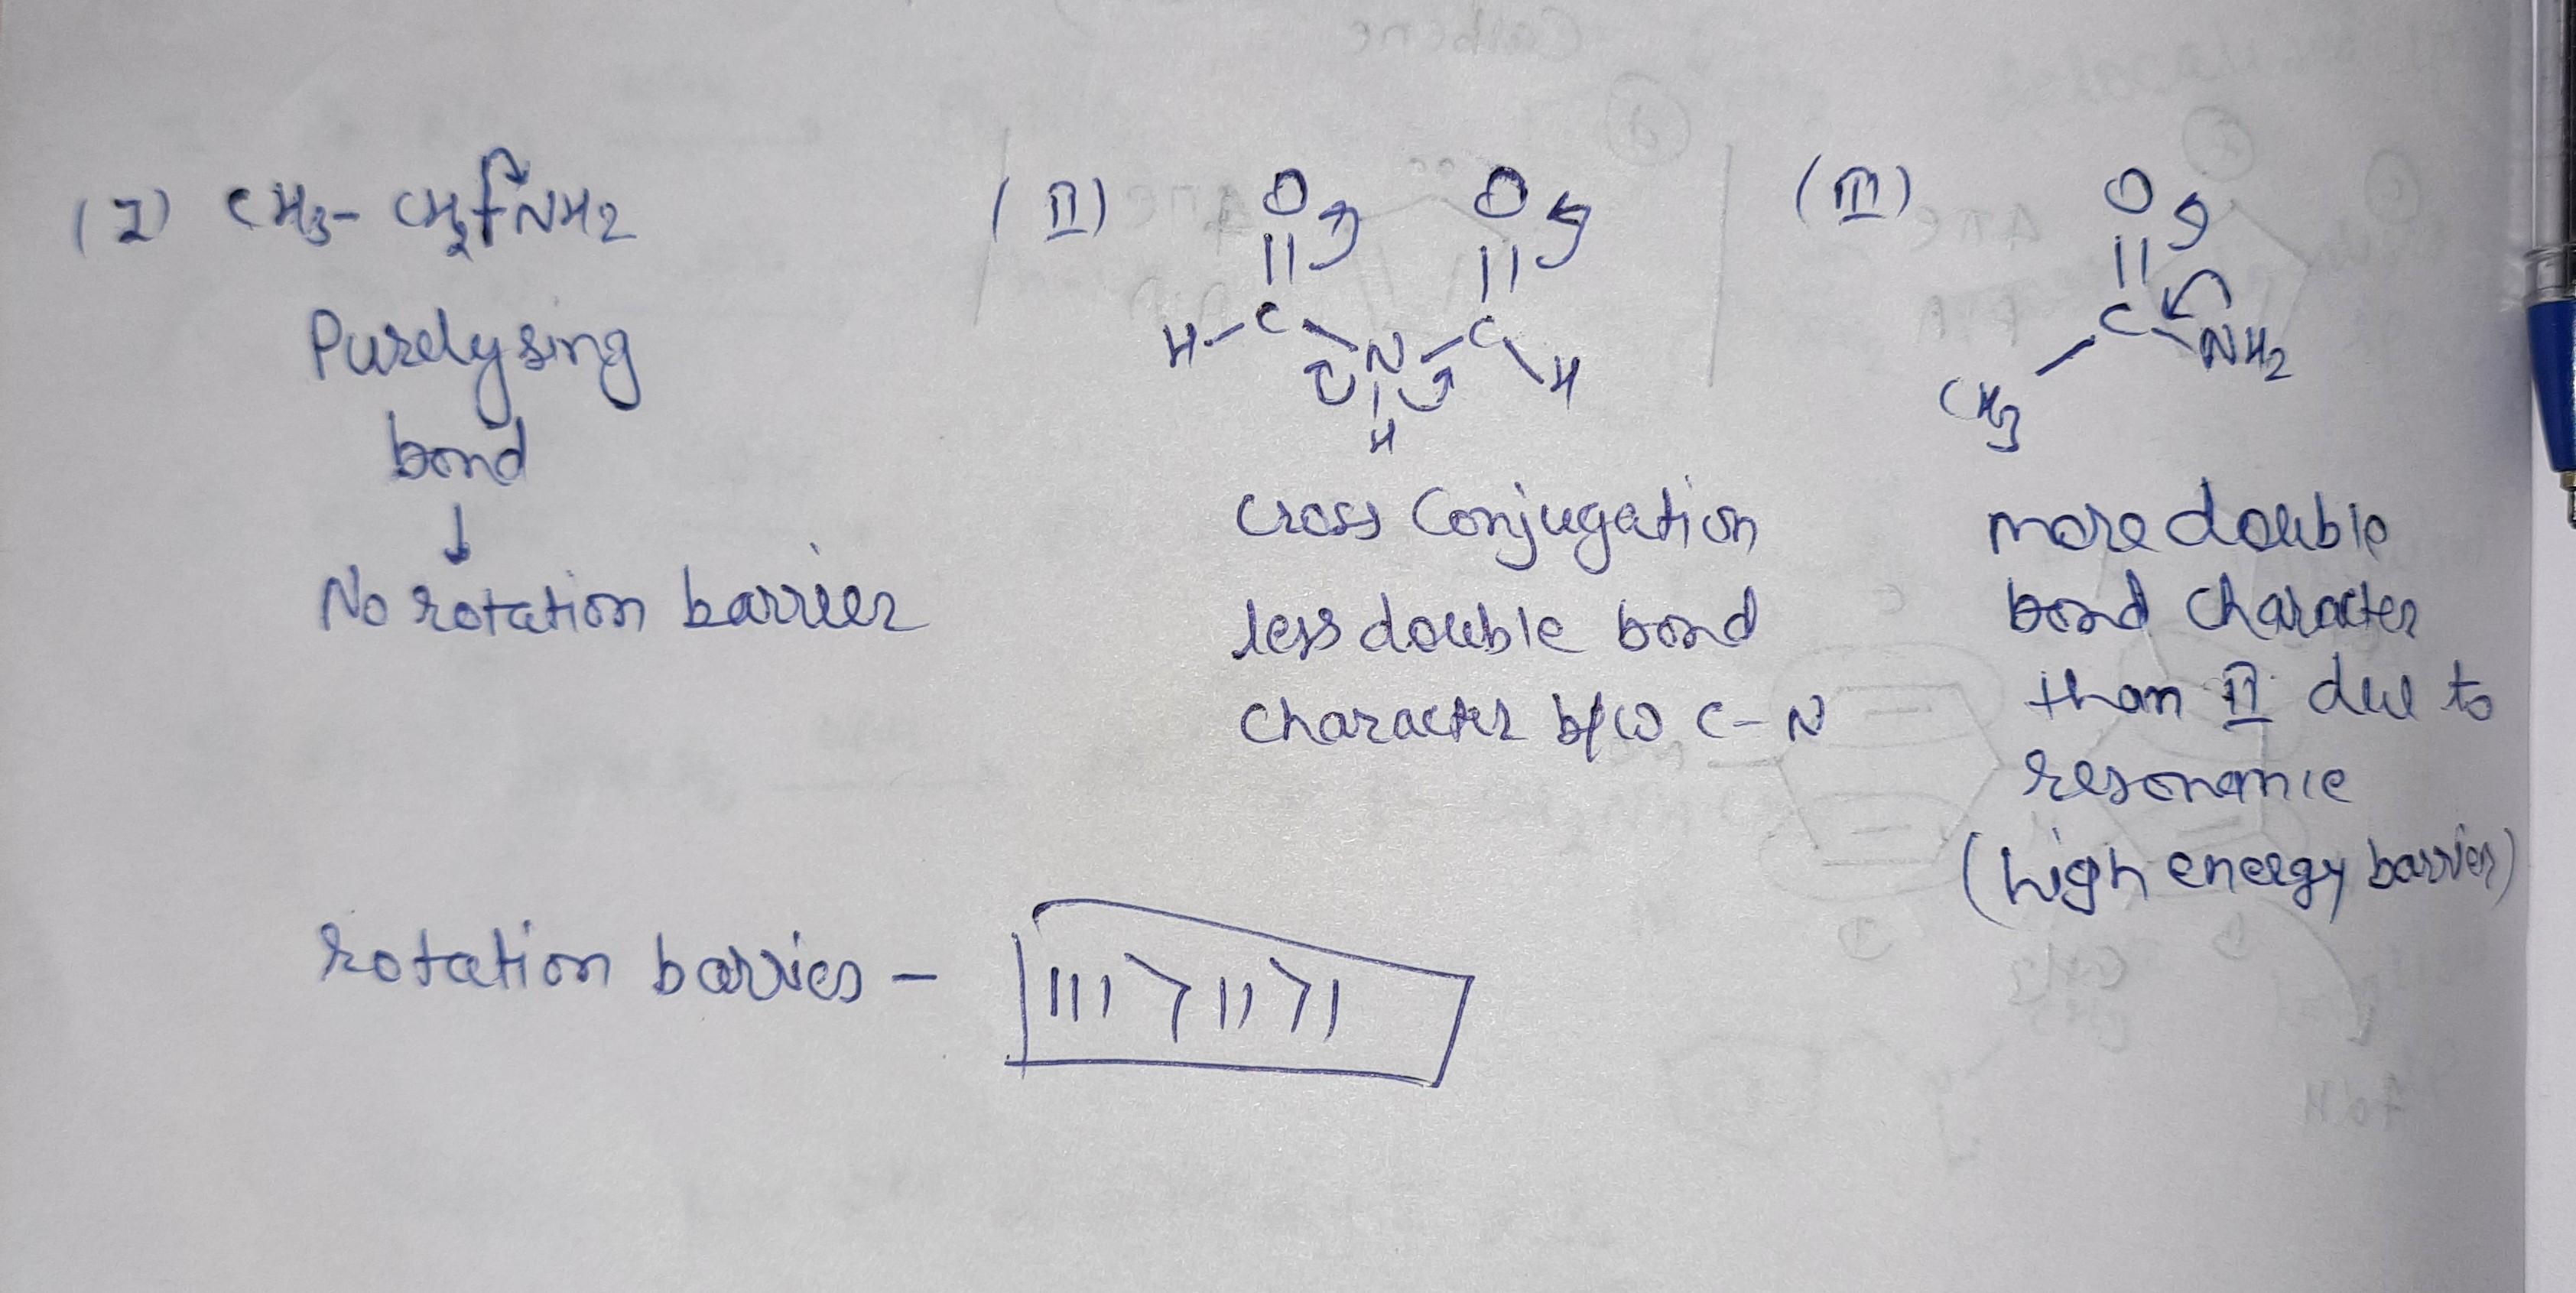 (I) CH3- CH2-NH2
Purely sing
bond
↓
No rotation barrier
(II)
O O
|| ||
H-C C
N
H
H
cross conjugation
less double bond
character b/w C-N
(III)
O
||
C
NH2
CH3
more double
bond character
than II due to
resonance
(high energy barrier)
rotation barrier - III>II>I